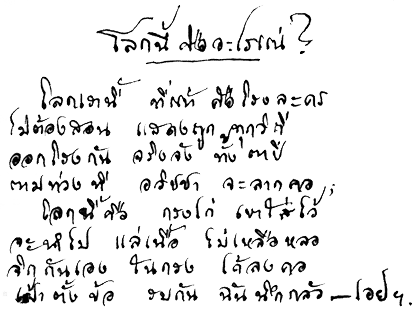 โลกนี้ คือ อะไรแน่ ?
โลกเรานี้ ที่แท้ คือ โรงละคร
ไม่ต้องสอน แสดงถูก ทุกวิถี
ออกโรงกัน จริงจัง ทั้งตาปี
ตามท่วงที อวิชชา จะลากคอ ;
โลกนี้คือ กรงไก่ เขาใส่ไว้
จะนำไป แล่เนื้อ ไม่เหลือหลอ
จิกกันเอง ในกรง ได้ลงคอ
เฝ้าตั้งข้อ รบกัน ฉันนึกกลัว — เอยฯ.